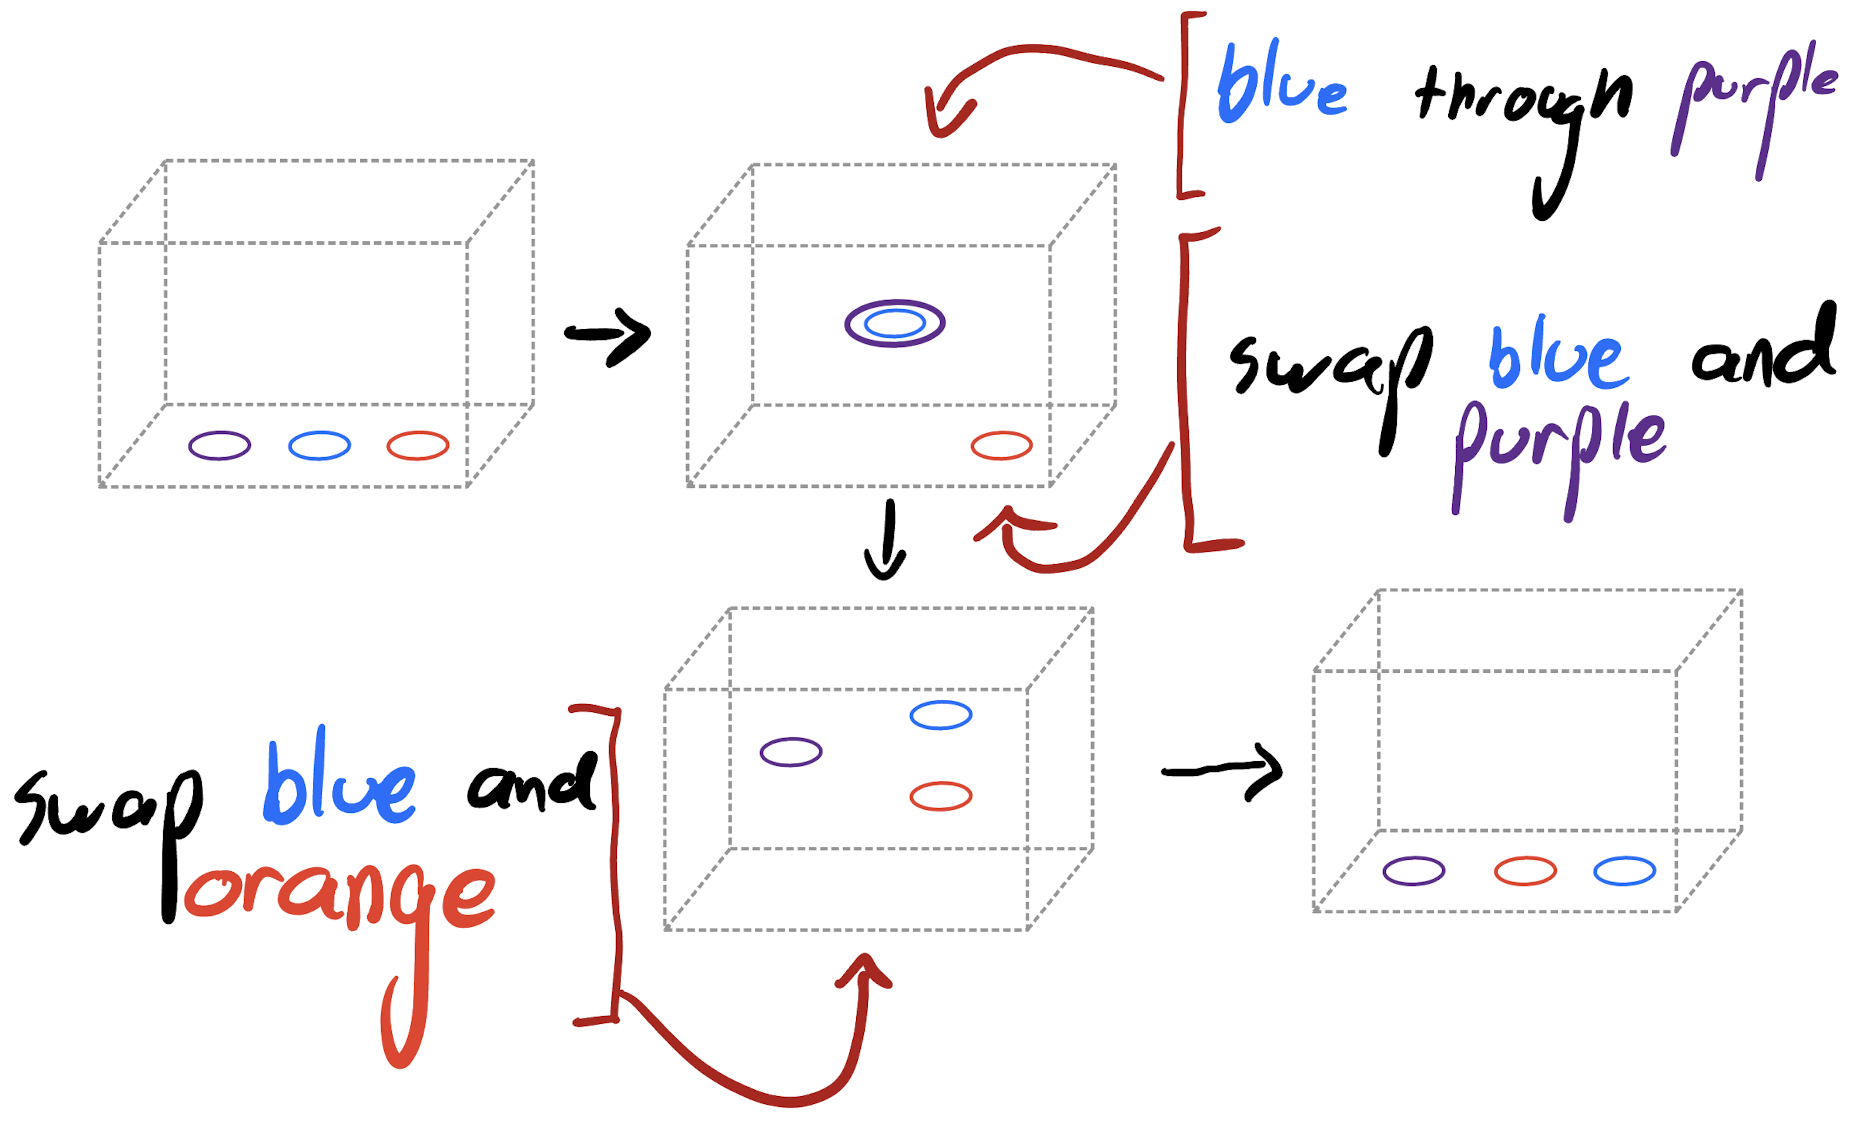 blue through purple
swap blue and
purple
swap blue and
orange